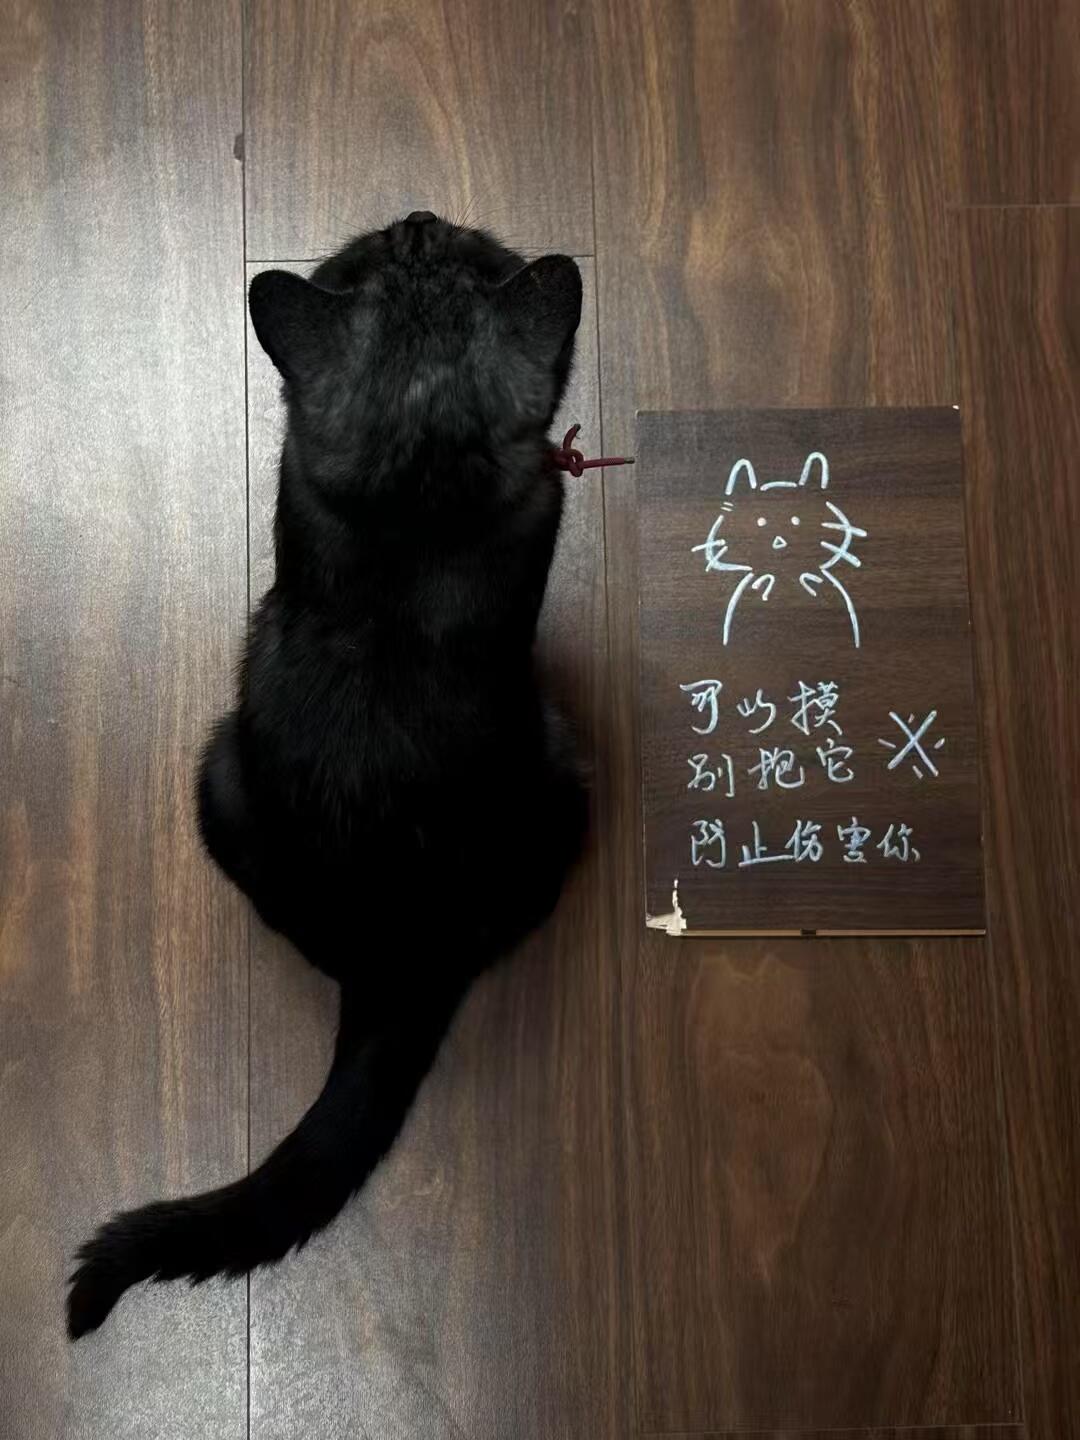 可以摸
别抱它
防止伤害你